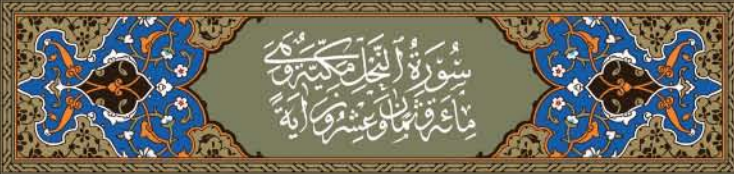 سُورَةُ ٱلنَّحْلِ مَكِّيَّةٌ وَهِيَ
مِائَةٌ وَثَمَانٌ وَعِشْرُونَ آيَةً